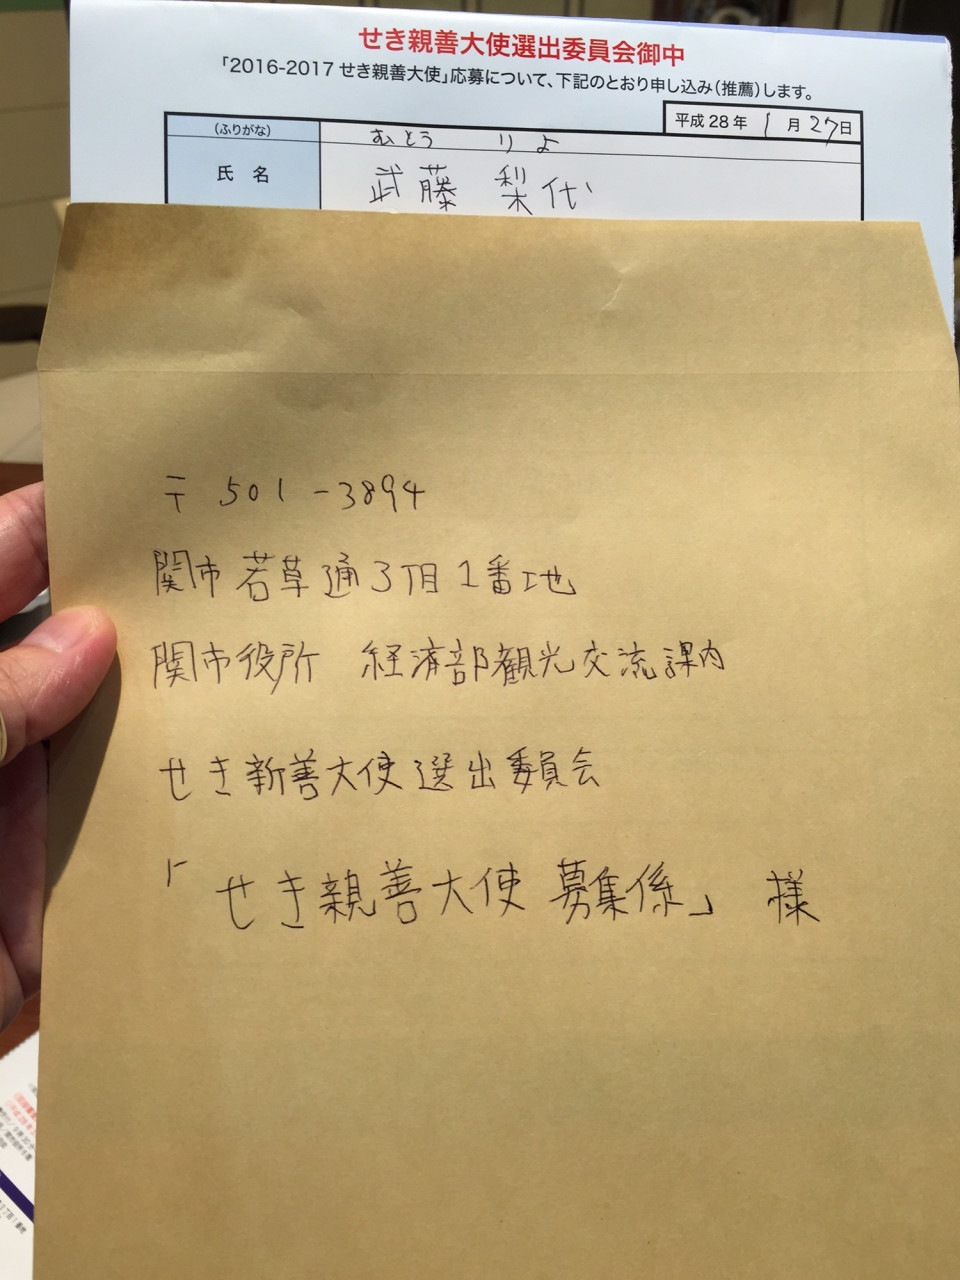 せき親善大使選出委員会御中
「2016-2017 せき親善大使」応募について、下記のとおり申し込み(推薦)します。
平成28年 1月27日
(ふりがな) むとう りよ
氏名 武藤 梨代
〒501-3894
関市若草通3丁目1番地
関市役所 経済部観光交流課内
せき新善大使選出委員会
「せき親善大使 募集係」 様